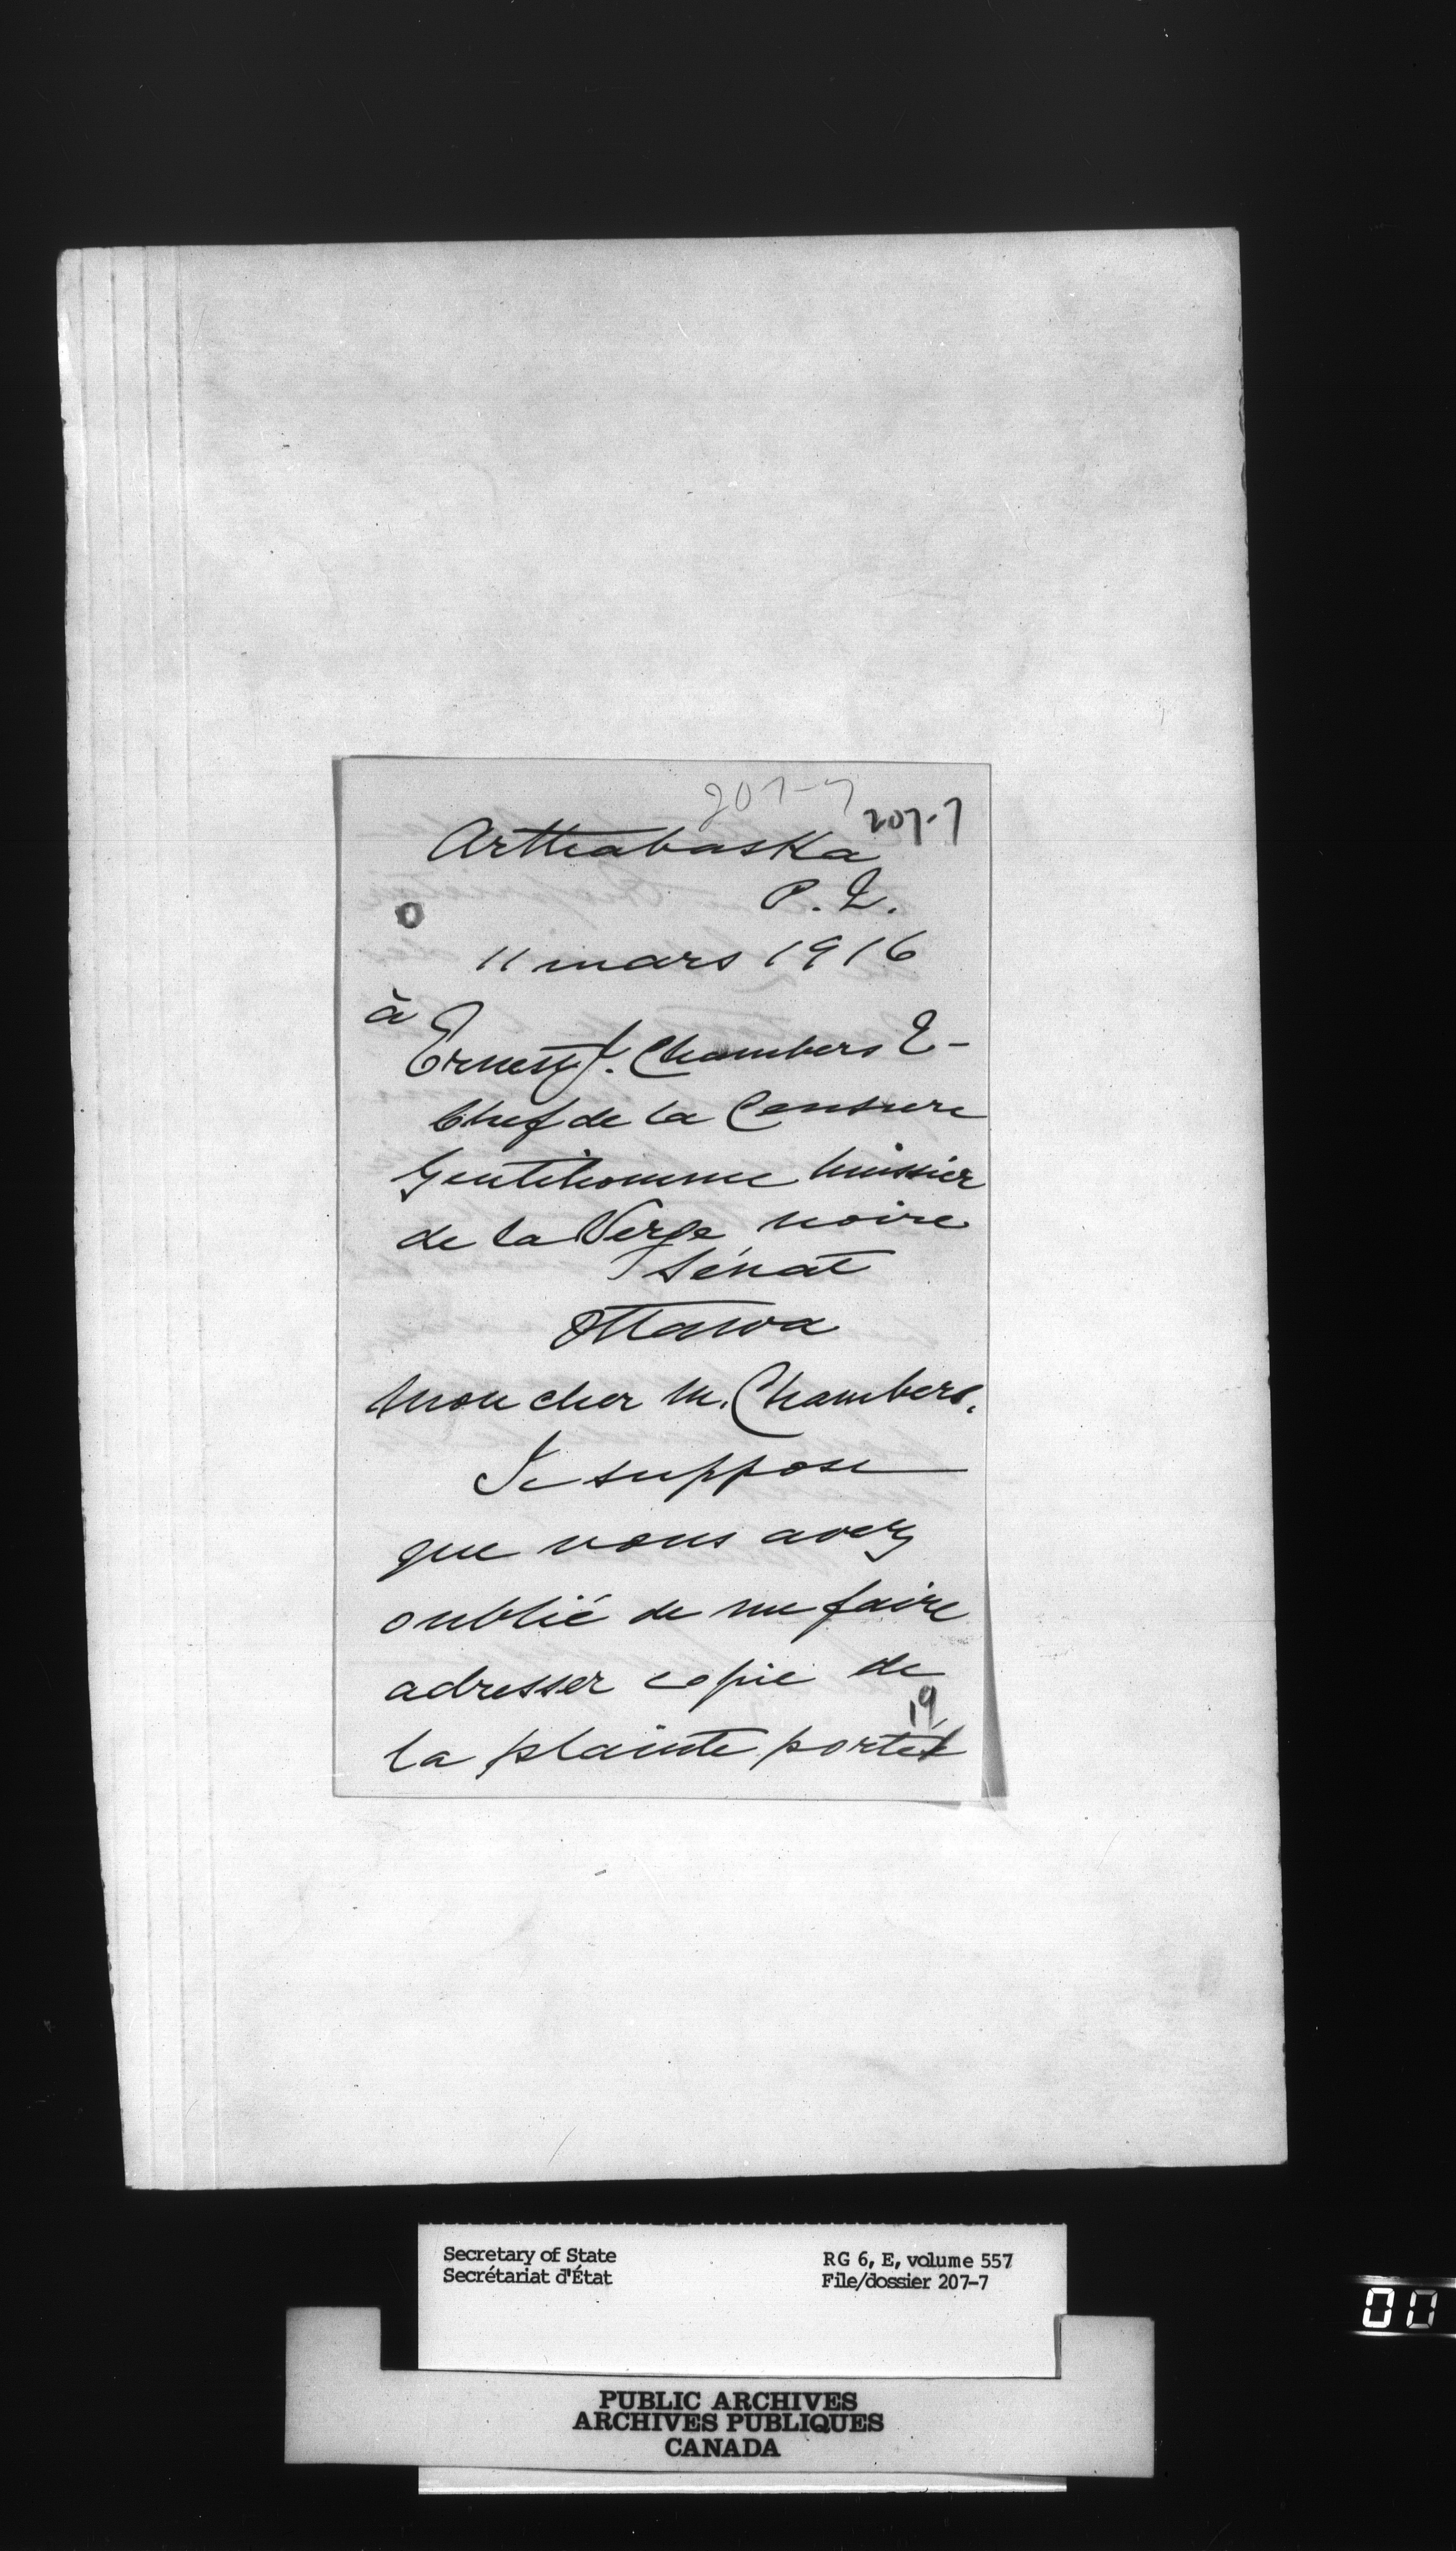 207-7
207-7
Arthabaska
P. Q.
11 mars 1916
à
Ernest J. Chambers E-
Chef de la Censure
Gentilhomme huissier
de la Verge noire
Sénat
Ottawa
Mon cher M. Chambers,
Je suppose
que vous avez
oublié de me faire
adresser copie de
19
la plainte porté
Secretary of State
Secrétariat d'État
RG 6, E, volume 557
File/dossier 207-7
00
PUBLIC ARCHIVES
ARCHIVES PUBLIQUES
CANADA